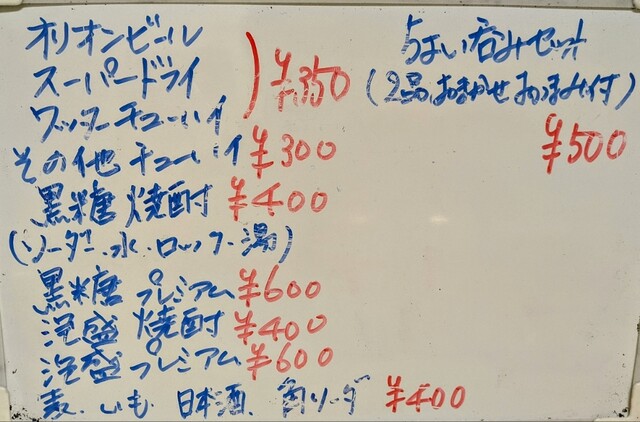 オリオンビール
スーパードライ ¥350
ワッターチューハイ
その他チューハイ ¥300
黒糖焼酎 ¥400
(ソーダー・水・ロック・湯)
黒糖プレミアム ¥600
泡盛焼酎 ¥400
泡盛プレミアム ¥600
麦、いも、日本酒、角ソーダ ¥400
ちょい呑みセット
(2品、おまかせおつまみ付)
¥500